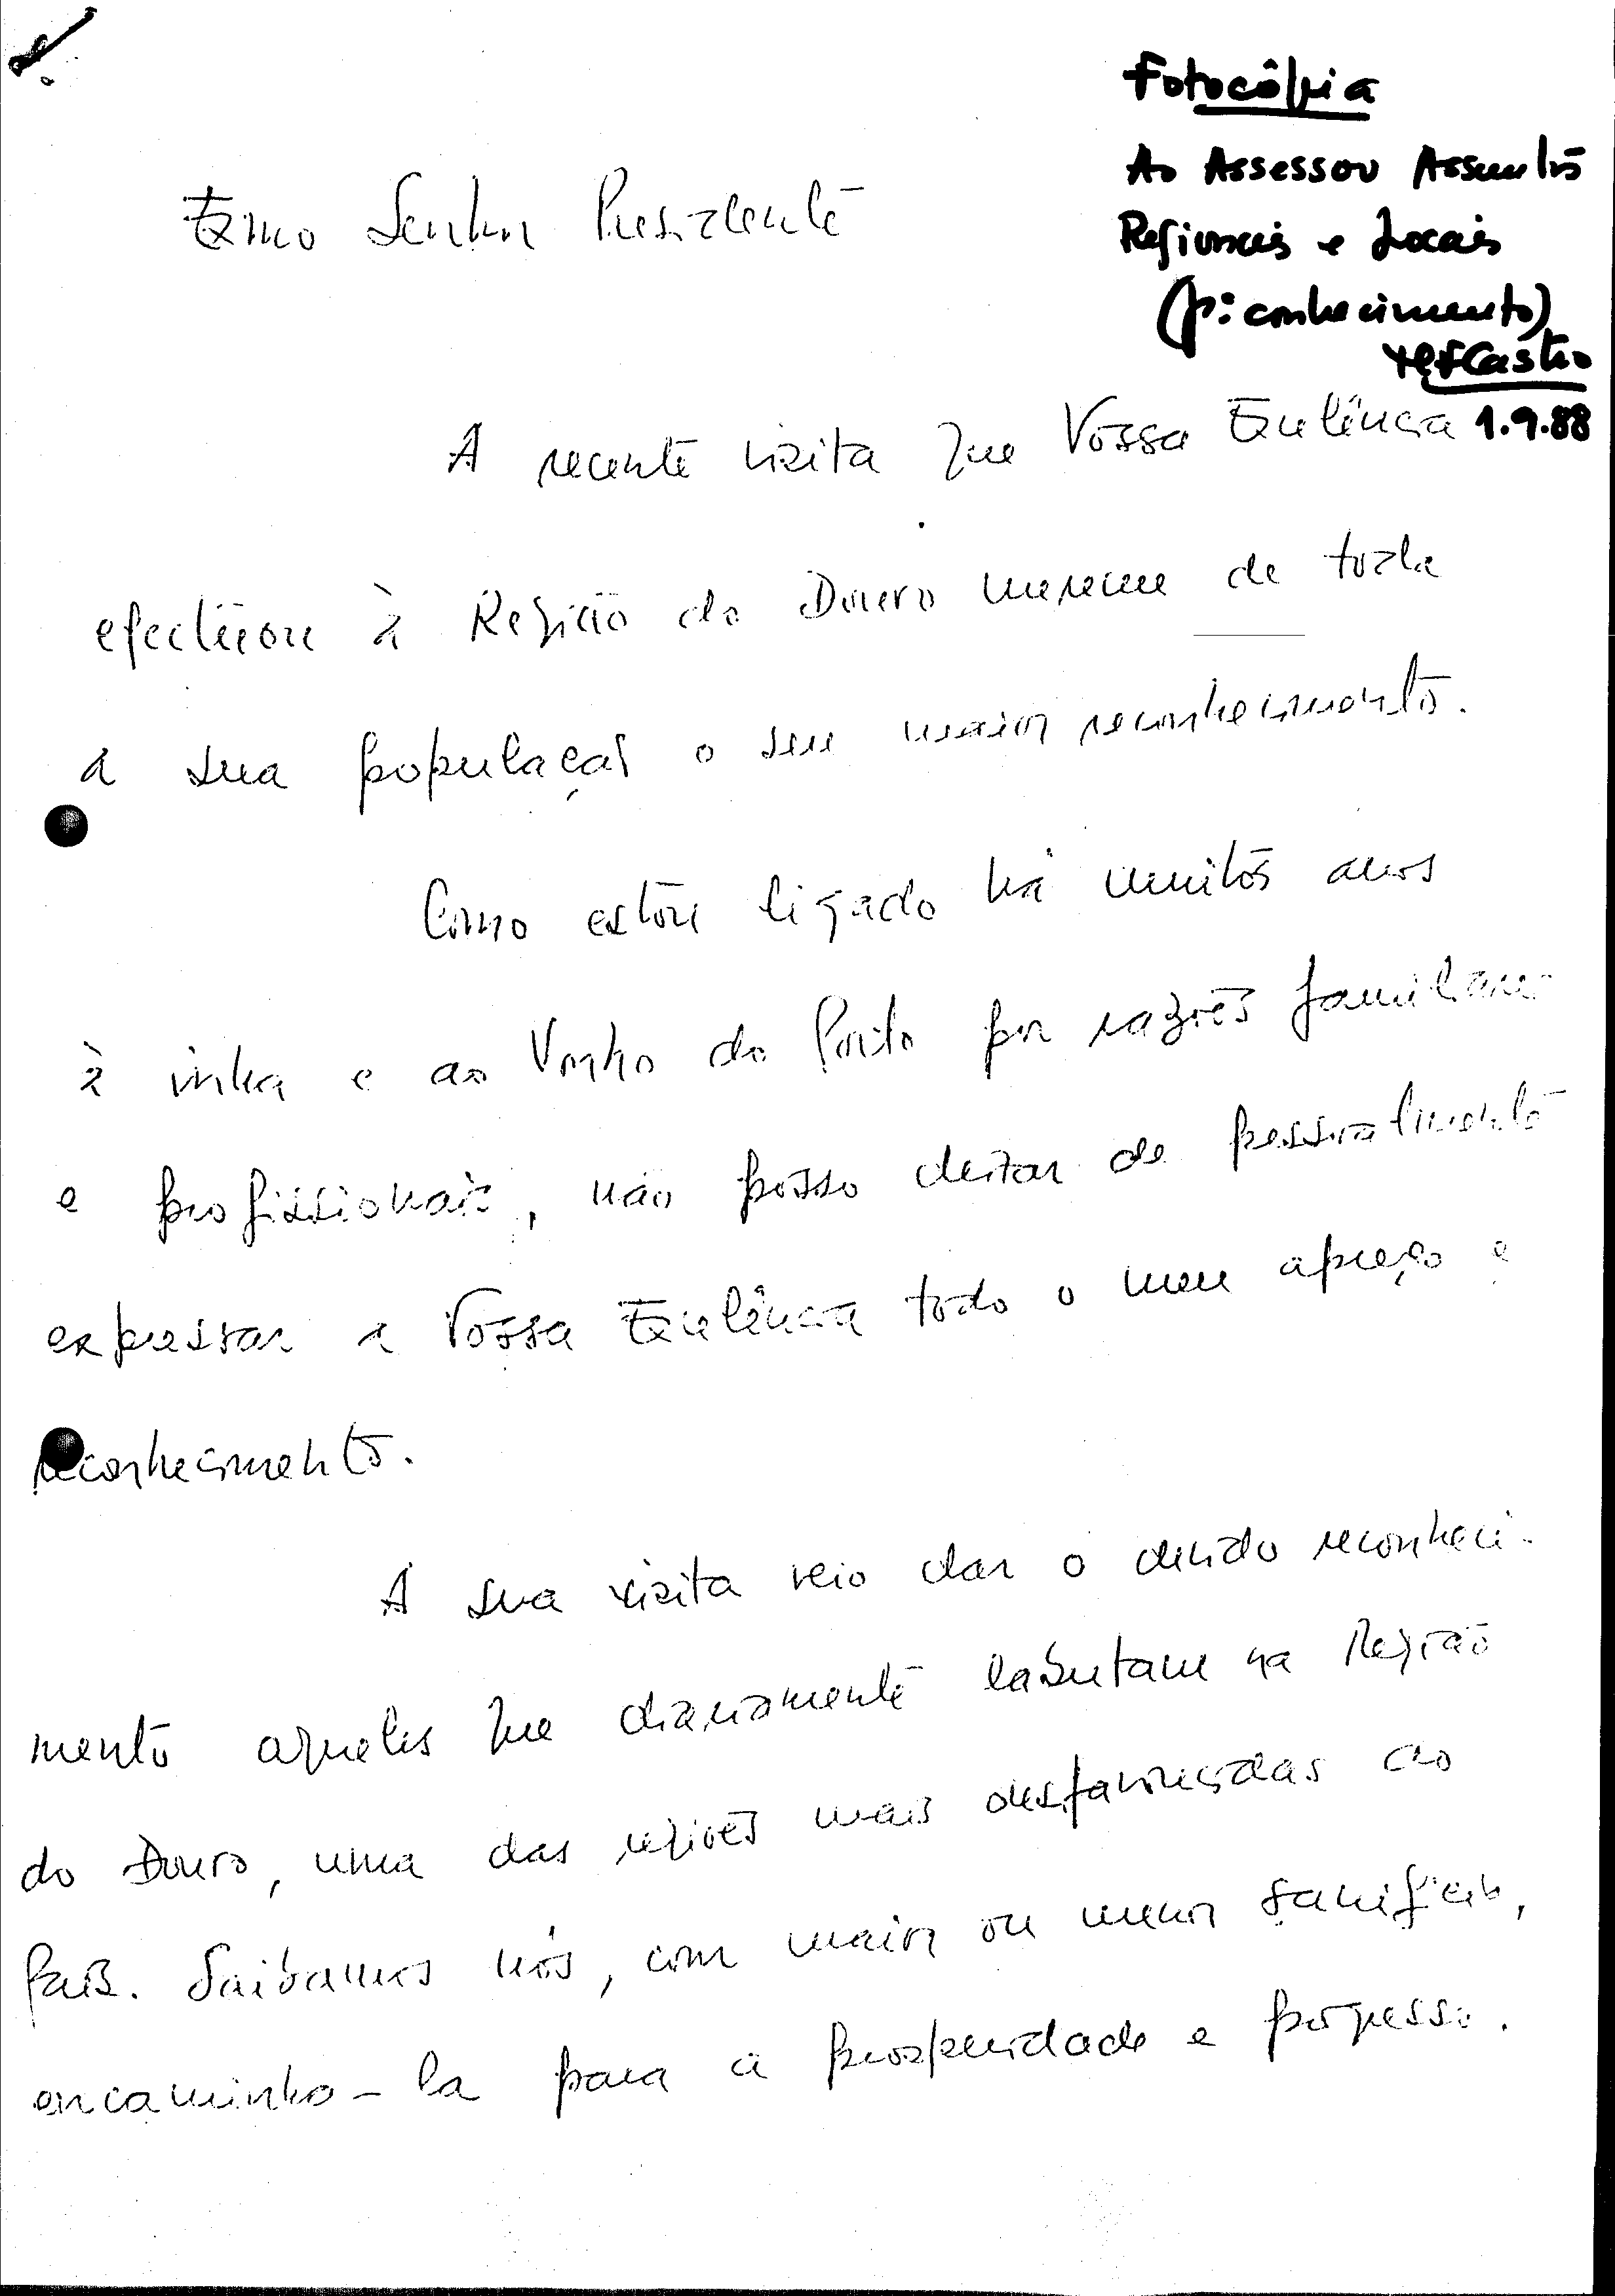 Fotocópia
Ao Assessor Assuntos
Regionais e Locais
(p: conhecimento)
1.9.88
Exmo Senhor Presidente
A recente visita que Vossa Exelência
efectuou à Região do Douro merece de toda
a sua população o seu maior reconhecimento.
Como estou ligado há muitos anos
à vinha e ao Vinho do Porto por razões familiares
e profissionais, não posso deixar de pessoalmente
expressar a Vossa Exelência todo o meu apreço e
reconhecimento.
A sua visita veio dar o devido reconheci-
mento aqueles que diariamente labutam na Região
do Douro, uma das regiões mais desfavorecidas do
País. Saibamos nós, com maior ou menor sacrifício,
encaminha-la para a prosperidade e progresso.